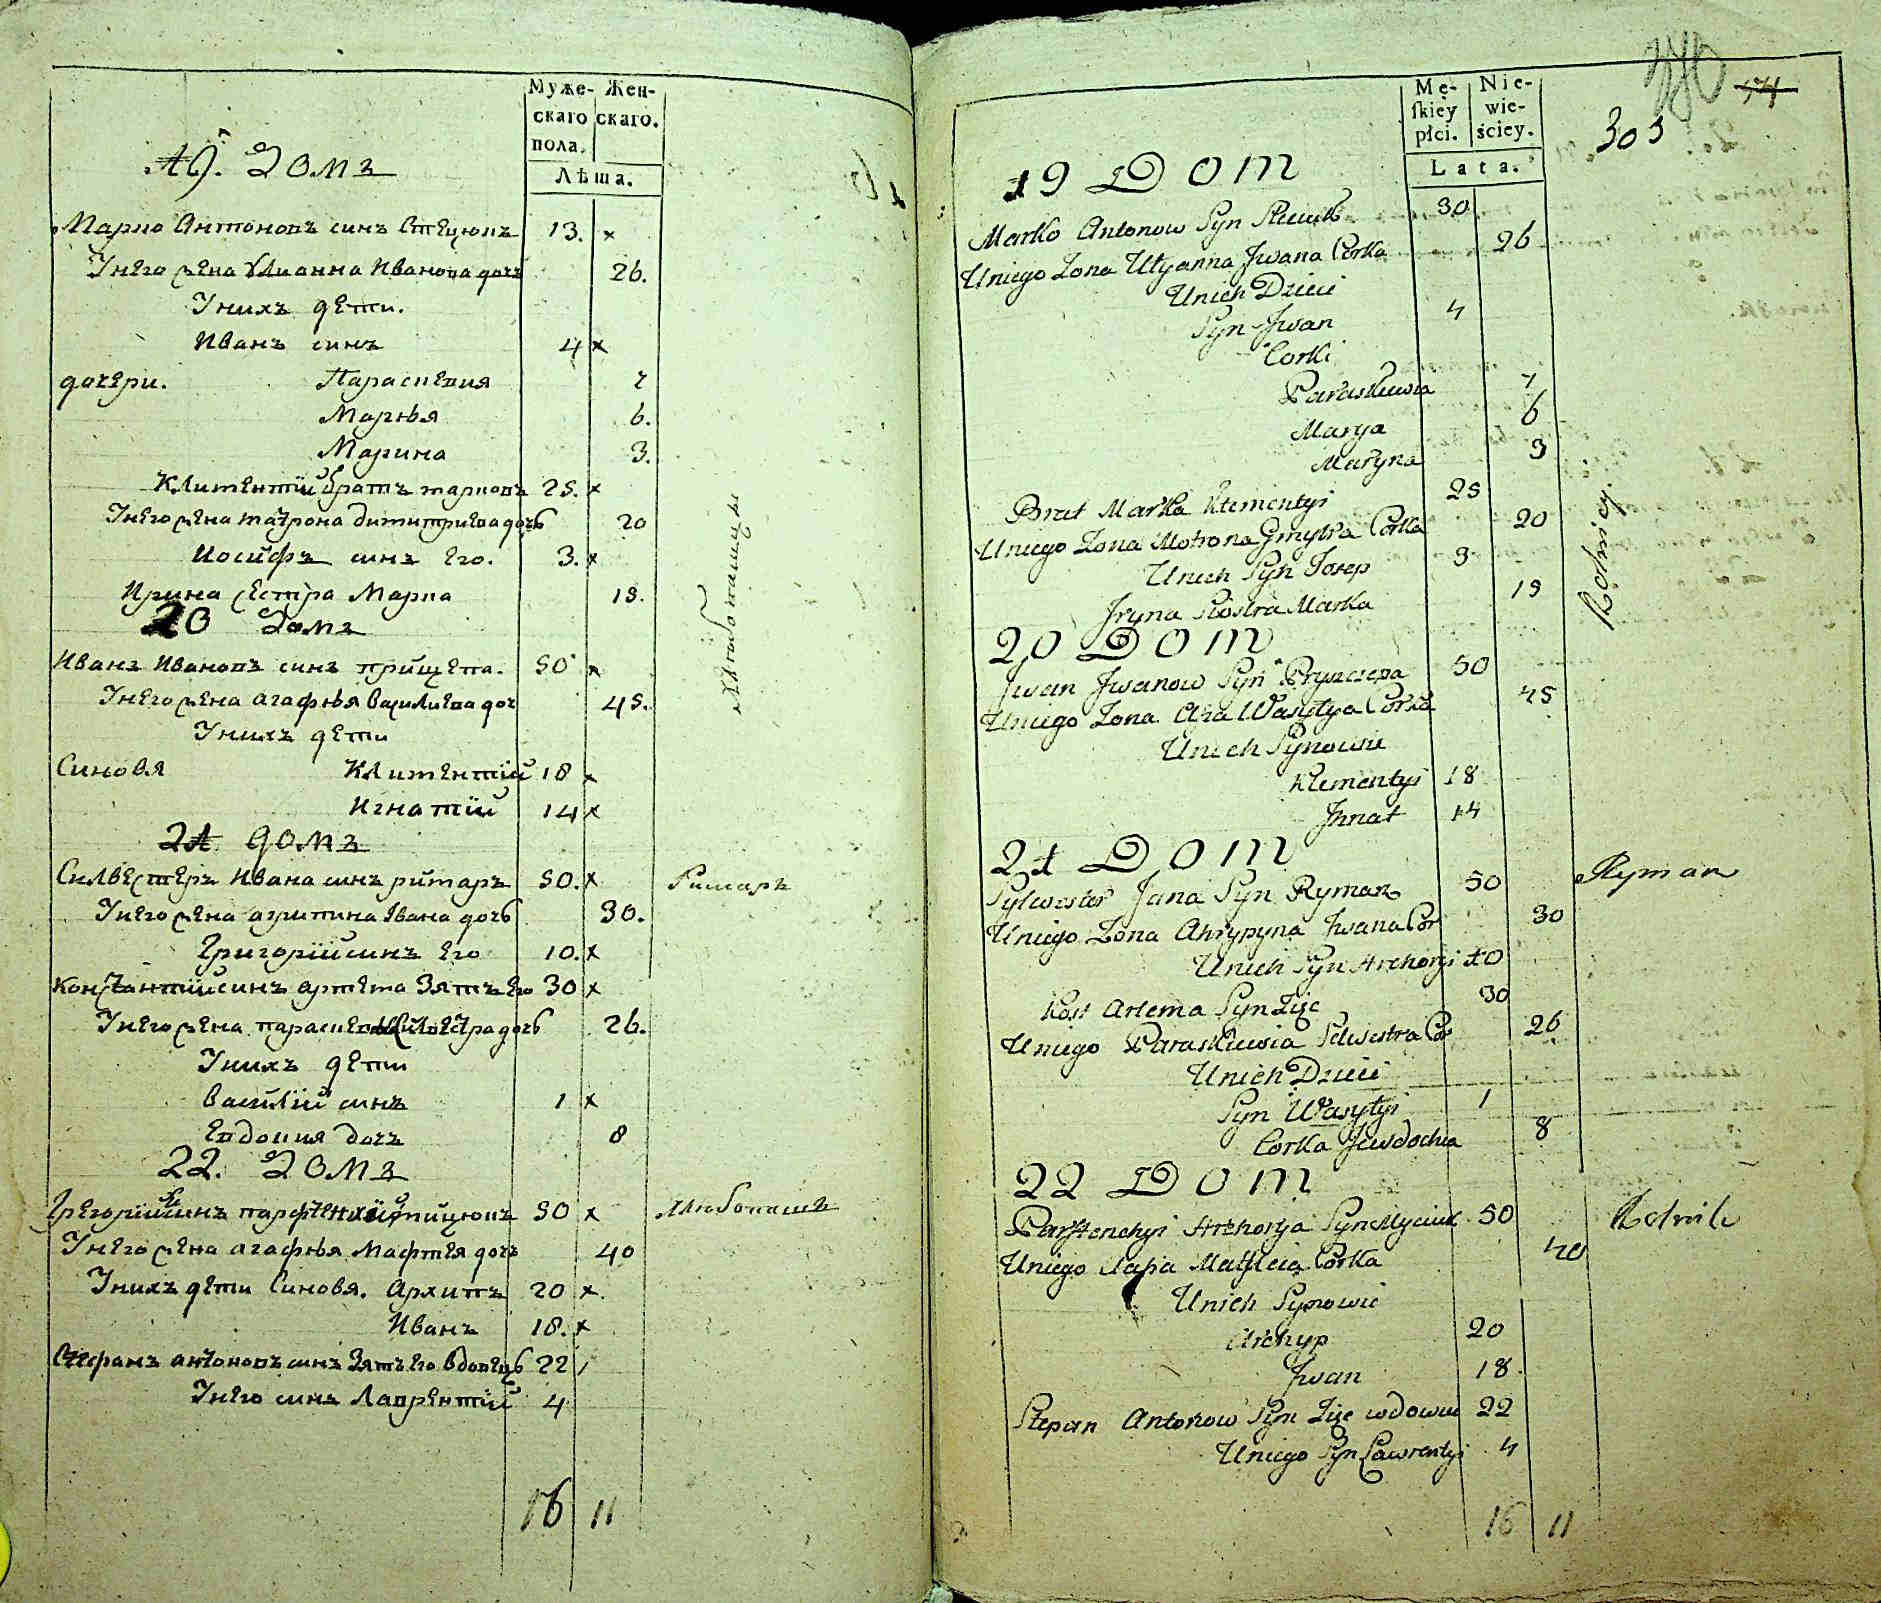 Муже-
скаго
пола.
Жен-
скаго.
Лѣта.
19. Домъ
Марко Антоновъ синъ Стецюкъ 13. x
Унего жена Улианна Иванова дочъ 26.
Унихъ дети.
Иванъ синъ 4 x
дочери. Параскевия 7
Марья 6.
Марина 3.
Климентий братъ марковъ 25. x
Унего жена матрона димитриева дочь 20
Иосифъ синъ его. 3. x
Ирина сестра Марка 19.
20 Домъ
Иванъ Ивановъ синъ прищепа. 50 x
Унего жена агафья василиева доч 45.
Унихъ дети
Синовя Климентий 18 x
Игнатий 14 x
21 домъ
Силвестеръ Ивана синъ римаръ 50. x Римаръ
Унего жена агрипина Iвана дочь 30.
Григорий синъ его 10. x
Константий синъ артема Зятъ его 30 x
Унего жена параскевия Силвестра дочь 26.
Унихъ дети
Василий синъ 1 x
Евдокия дочъ 8
22. Домъ
синъ 50 x хлѣбопашъ
Унего жена агафья Мафтея дочъ 40
Унихъ дети Синовя. Архипъ 20 x
Иванъ 18. x
Стефанъ антоновъ синъ Зятъ его вдовецъ 22
Унего синъ Лаврентий 4
16 11
хлѣбопашцы
Mę-
skiey
płci.
Nie-
wie-
ściey.
Lata.
174
303
19 Dom
Marko Antonow Syn 30
Uniego Zona Ulyanna Jwana Corka 26
Unich Dzieci
Syn Jwan 4
Corki
Paraskiewia 7
Marya 6
Maryna 3
Brat Marka Klementyi 25
Uniego Zona Motrona Dmytra Corka 20
Unich Syn Josep 3
Jryna Siostra Marka 19
Rolnicy
20 Dom
Jwan Jwanow Syn Pryszczepa 50
Uniego Zona Wasylya Corka 45
Unich Synowie
Klementyi 18
Jhnat 14
21 Dom
Sylwester Jana Syn Rymarz 50 Rymarz
Uniego Zona Ahrypyna Jwana Cor 30
Unich Syn Hrehoryi 10
Kost Artema Syn Zięc 30
Uniego Paraskiewia Selwestra Cor 26
Unich Dzieci
Syn Wasylyi 1
Corka Jewdochia 8
22 Dom
Parftenchyi Hrehorya Syn 50 Rolnik
Uniego Matfieia Corka 40
Unich Synowie
Archyp 20
Jwan 18.
Stepan Antonow Syn Zięc wdowiec 22
Uniego Syn Lawrentyi 4
16 11